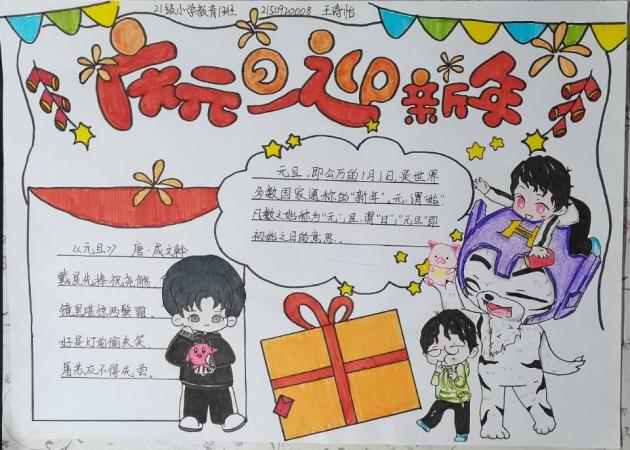 21级小学教育1班 2150920008 王诗怡
庆元旦迎新年
元旦,即公历的1月1日,是世界
多数国家通称的"新年"。元,谓"始"
凡数之始称为"元";旦,谓"日";"元旦"即
初始之日的意思。
《元旦》 唐·成文幹
戴星先捧祝尧觞
镜里堪惊两鬓霜
好是灯前偷失笑
屠苏应不得先尝。